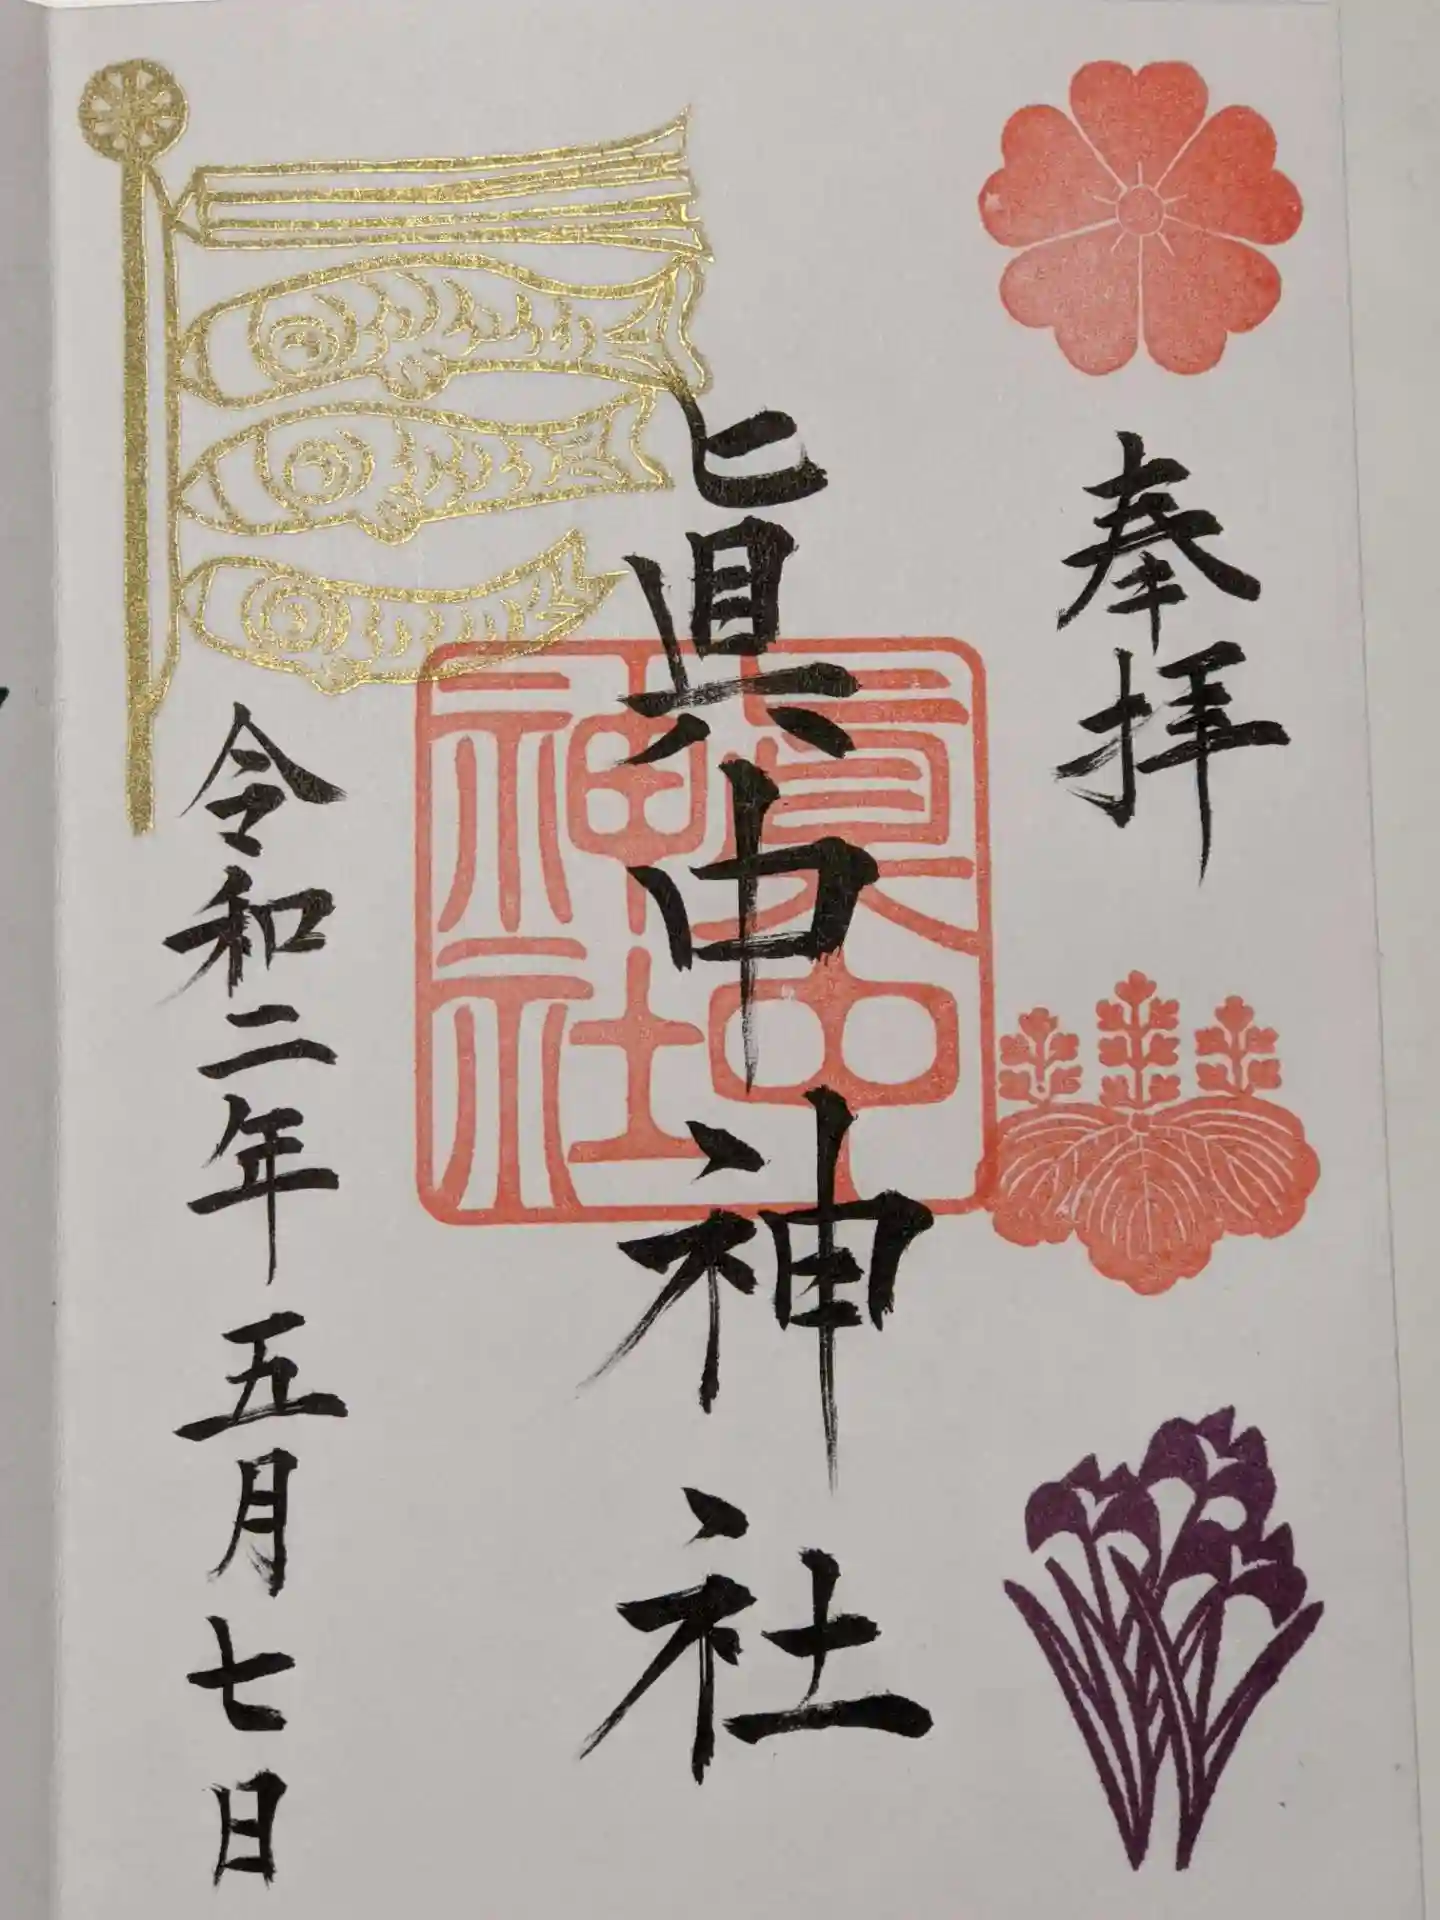 奉拝
眞中神社
眞中
神社
令和二年五月七日